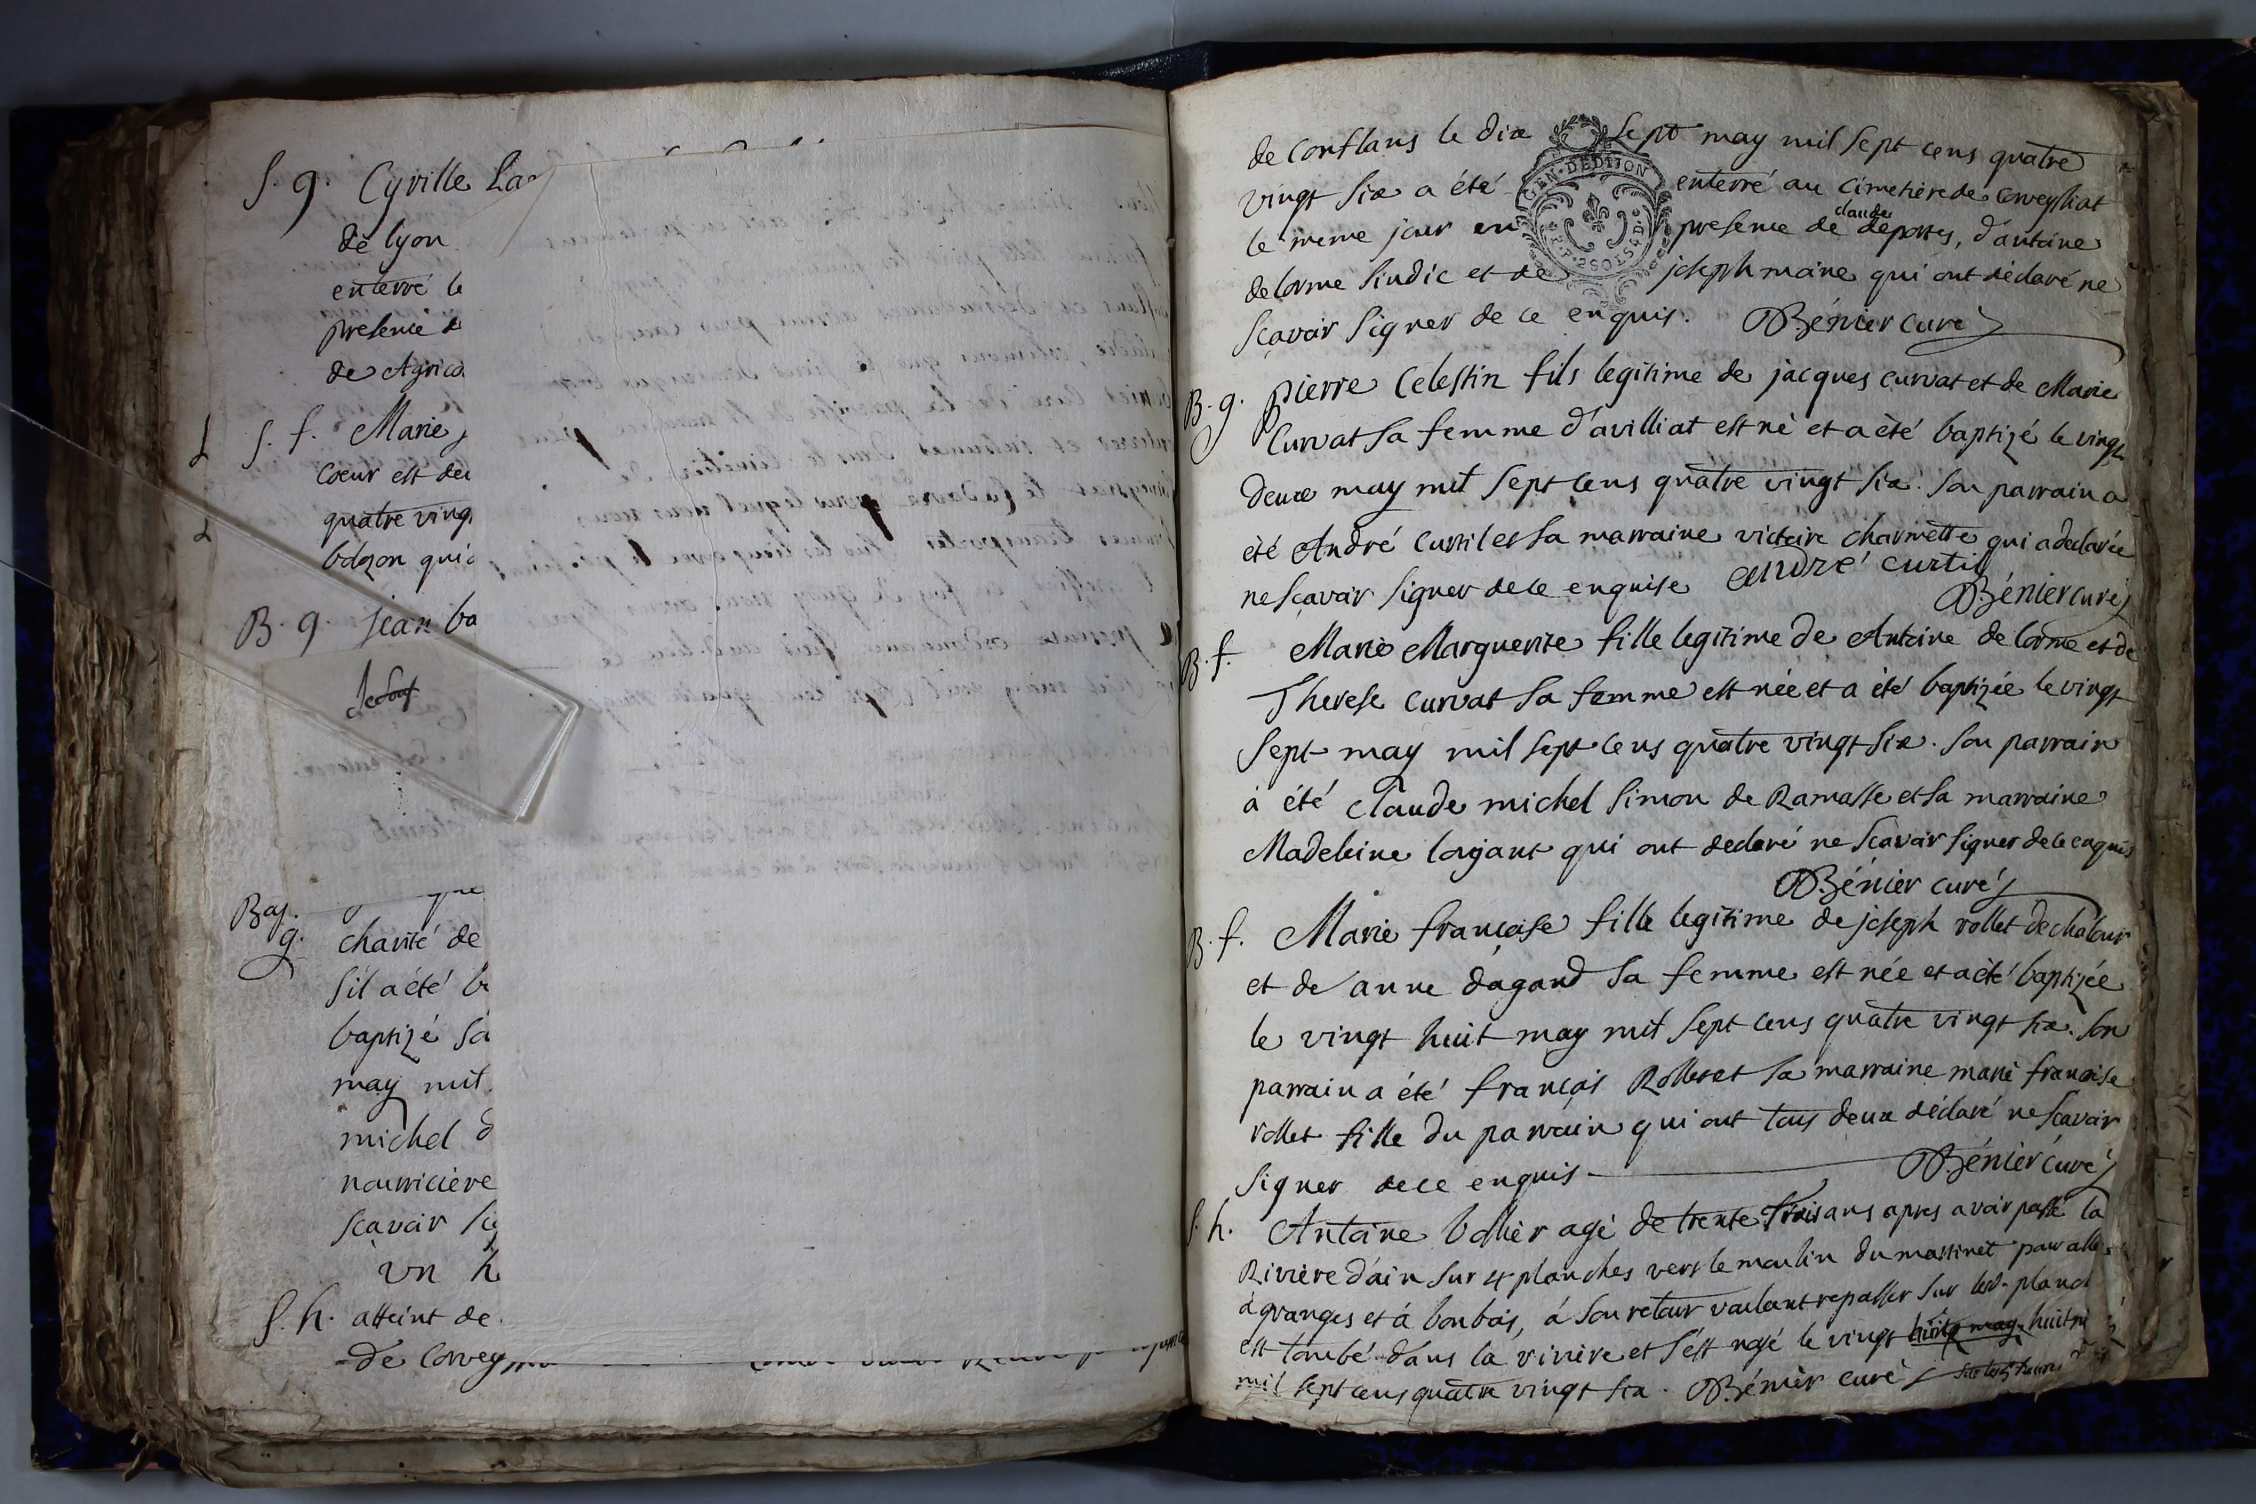 S. g. Cyrille
de lyon
enterré le
presence de
de Agrico
S. f. Marie
Coeur est de
quatre ving
bolozon qui
B. g. jean ba
Bap.
g. charité de
s'il a été b
baptizé sa
may mil
michel d
nourriciere
sçavoir si
un h
S. h. atteint de
de Corvey
de Conflans le dix sept may mil sept cens quatre
vingt six a été enterré au cimetière de corveyssiat
le meme jour en presence de claude deportes, d'antoine
delorme sindic et de joseph moine qui ont déclaré ne
sçavoir signer de ce enquis. Bénier curé
GEN. DEDITION
B. g. pierre Celestin fils legitime de jacques curvat et de Marie
Curvat sa femme d'avilliat est né et a été baptizé le vingt
deux may mil sept cens quatre vingt six. son parrain a
été André curtil et sa marraine victoire charnette qui a declarée
ne sçavoir signer de ce enquise andré curtil
Bénier curé
B. f. Marie Marguerite fille legitime de Antoine delorme et de
Therese curvat sa femme est née et a été baptizée le vingt
sept may mil sept cens quatre vingt six. son parrain
a été claude michel simon de Ramasse et sa marraine
Madeleine qui ont declaré ne sçavoir signer de ce enquis
Bénier curé
B. f. Marie françoise fille legitime de joseph rollet de chalour
et de anne dagand sa femme est née et a été baptizée
le vingt huit may mil sept cens quatre vingt six. son
parrain a été françois Rollet et sa marraine marie françoise
rollet fille du parrain qui ont tous deux déclaré ne sçavoir
signer de ce enquis Bénier curé
S. h. Antoine agé de trente trois ans apres avoir passé la
Rivière d'ain sur 4 planches vers le moulin du martinet pour aller
à granges et à bonbois, à son retour voulant repasser sur les d. planch
est tombé dans la rivière et s'est noyé le vingt huit may huit
mil sept cens quatre vingt six. Bénier curé